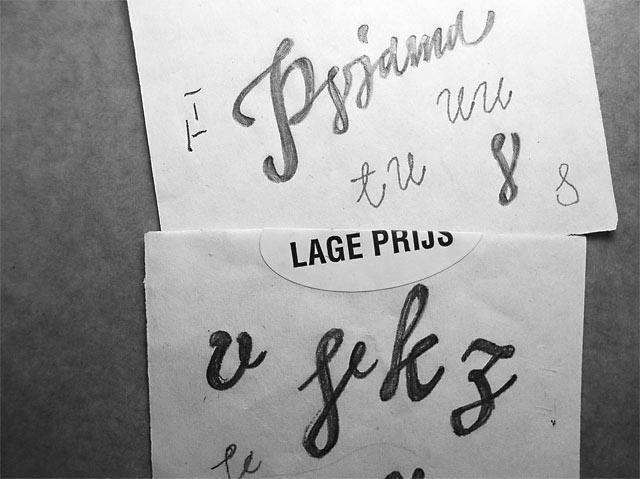 Pyjama
uu
tu 8 8
LAGE PRIJS
v ge k z
ge